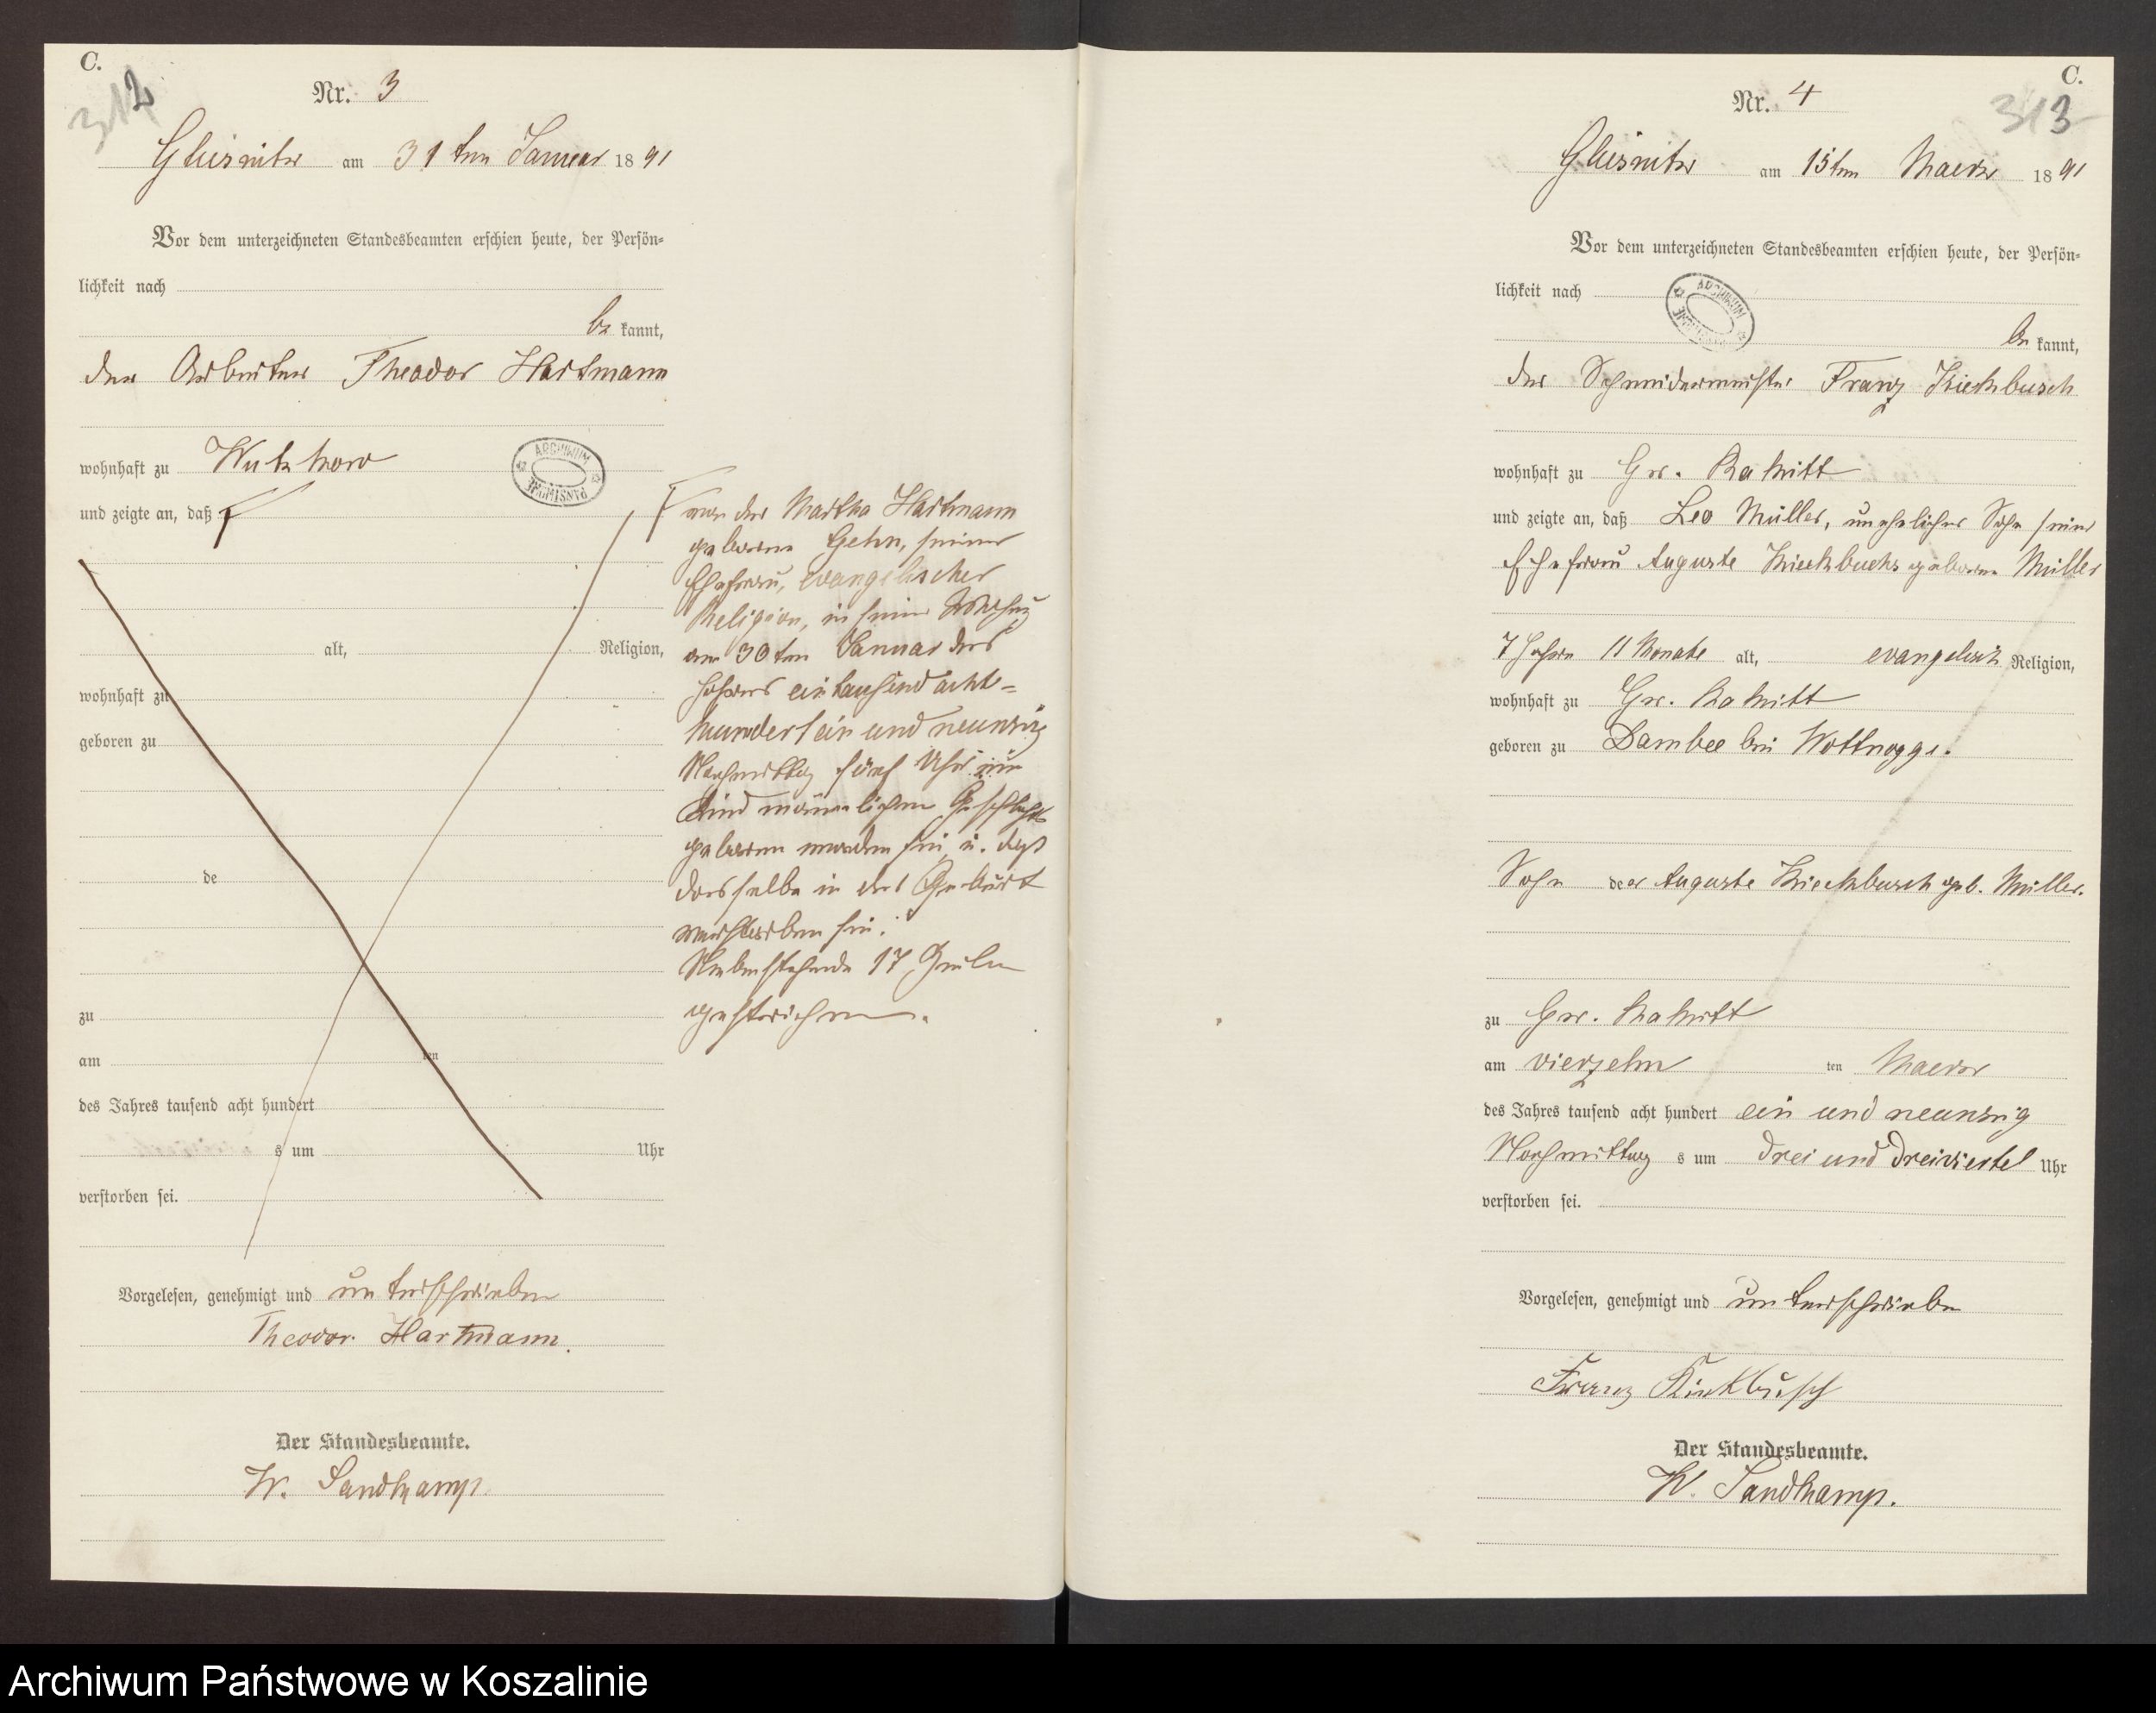 C.
312
Nr. 3
Gliesnitz am 31ten Januar 1891
Vor dem unterzeichneten Standesbeamten erschien heute, der Persön-
lichkeit nach
be kannt,
der Arbeiter Theodor Hartmann
wohnhaft zu Wutzkow
ARCHIWUM PAŃSTWOWE
und zeigte an, daß
alt, Religion,
wohnhaft zu
geboren zu
de
zu
am ten
des Jahres tausend acht hundert
s um Uhr
verstorben sei.
von der Martha Hartmann
geborene Gehn, seiner
Ehefrau, evangelischer
Religion, in seiner Wohnung
am 30ten Januar des
Jahres eintausend acht-
hundert ein und neunzig
Nachmittag fünf Uhr ein
Kind männlichen Geschlechts
geboren worden sei, u. daß
dasselbe in der Geburt
verstorben sei.
Nebenstehende 17 Zeilen
gestrichen.
Vorgelesen, genehmigt und unterschrieben
Theodor Hartmann.
Der Standesbeamte.
W. Sandkamp.
C.
313
Nr. 4
Gliesnitz am 15ten Maerz 1891
Vor dem unterzeichneten Standesbeamten erschien heute, der Persön-
lichkeit nach
ARCHIWUM PAŃSTWOWE
be kannt,
der Schneidermeister Franz Kieckbusch
wohnhaft zu Gr. Rakitt
und zeigte an, daß Leo Müller, unehelicher Sohn seiner
Ehefrau Auguste Kieckbuchs geborene Müller
7 Jahre 11 Monate alt, evangelisch Religion,
wohnhaft zu Gr. Rakitt
geboren zu Dambee bei Wottnogge.
Sohn de er Auguste Kieckbusch geb. Müller.
zu Gr. Rakitt
am vierzehn ten Maerz
des Jahres tausend acht hundert ein und neunzig
Nachmittag s um drei und dreiviertel Uhr
verstorben sei.
Vorgelesen, genehmigt und unterschrieben
Franz Kiekbusch
Der Standesbeamte.
W. Sandkamp.
Archiwum Państwowe w Koszalinie